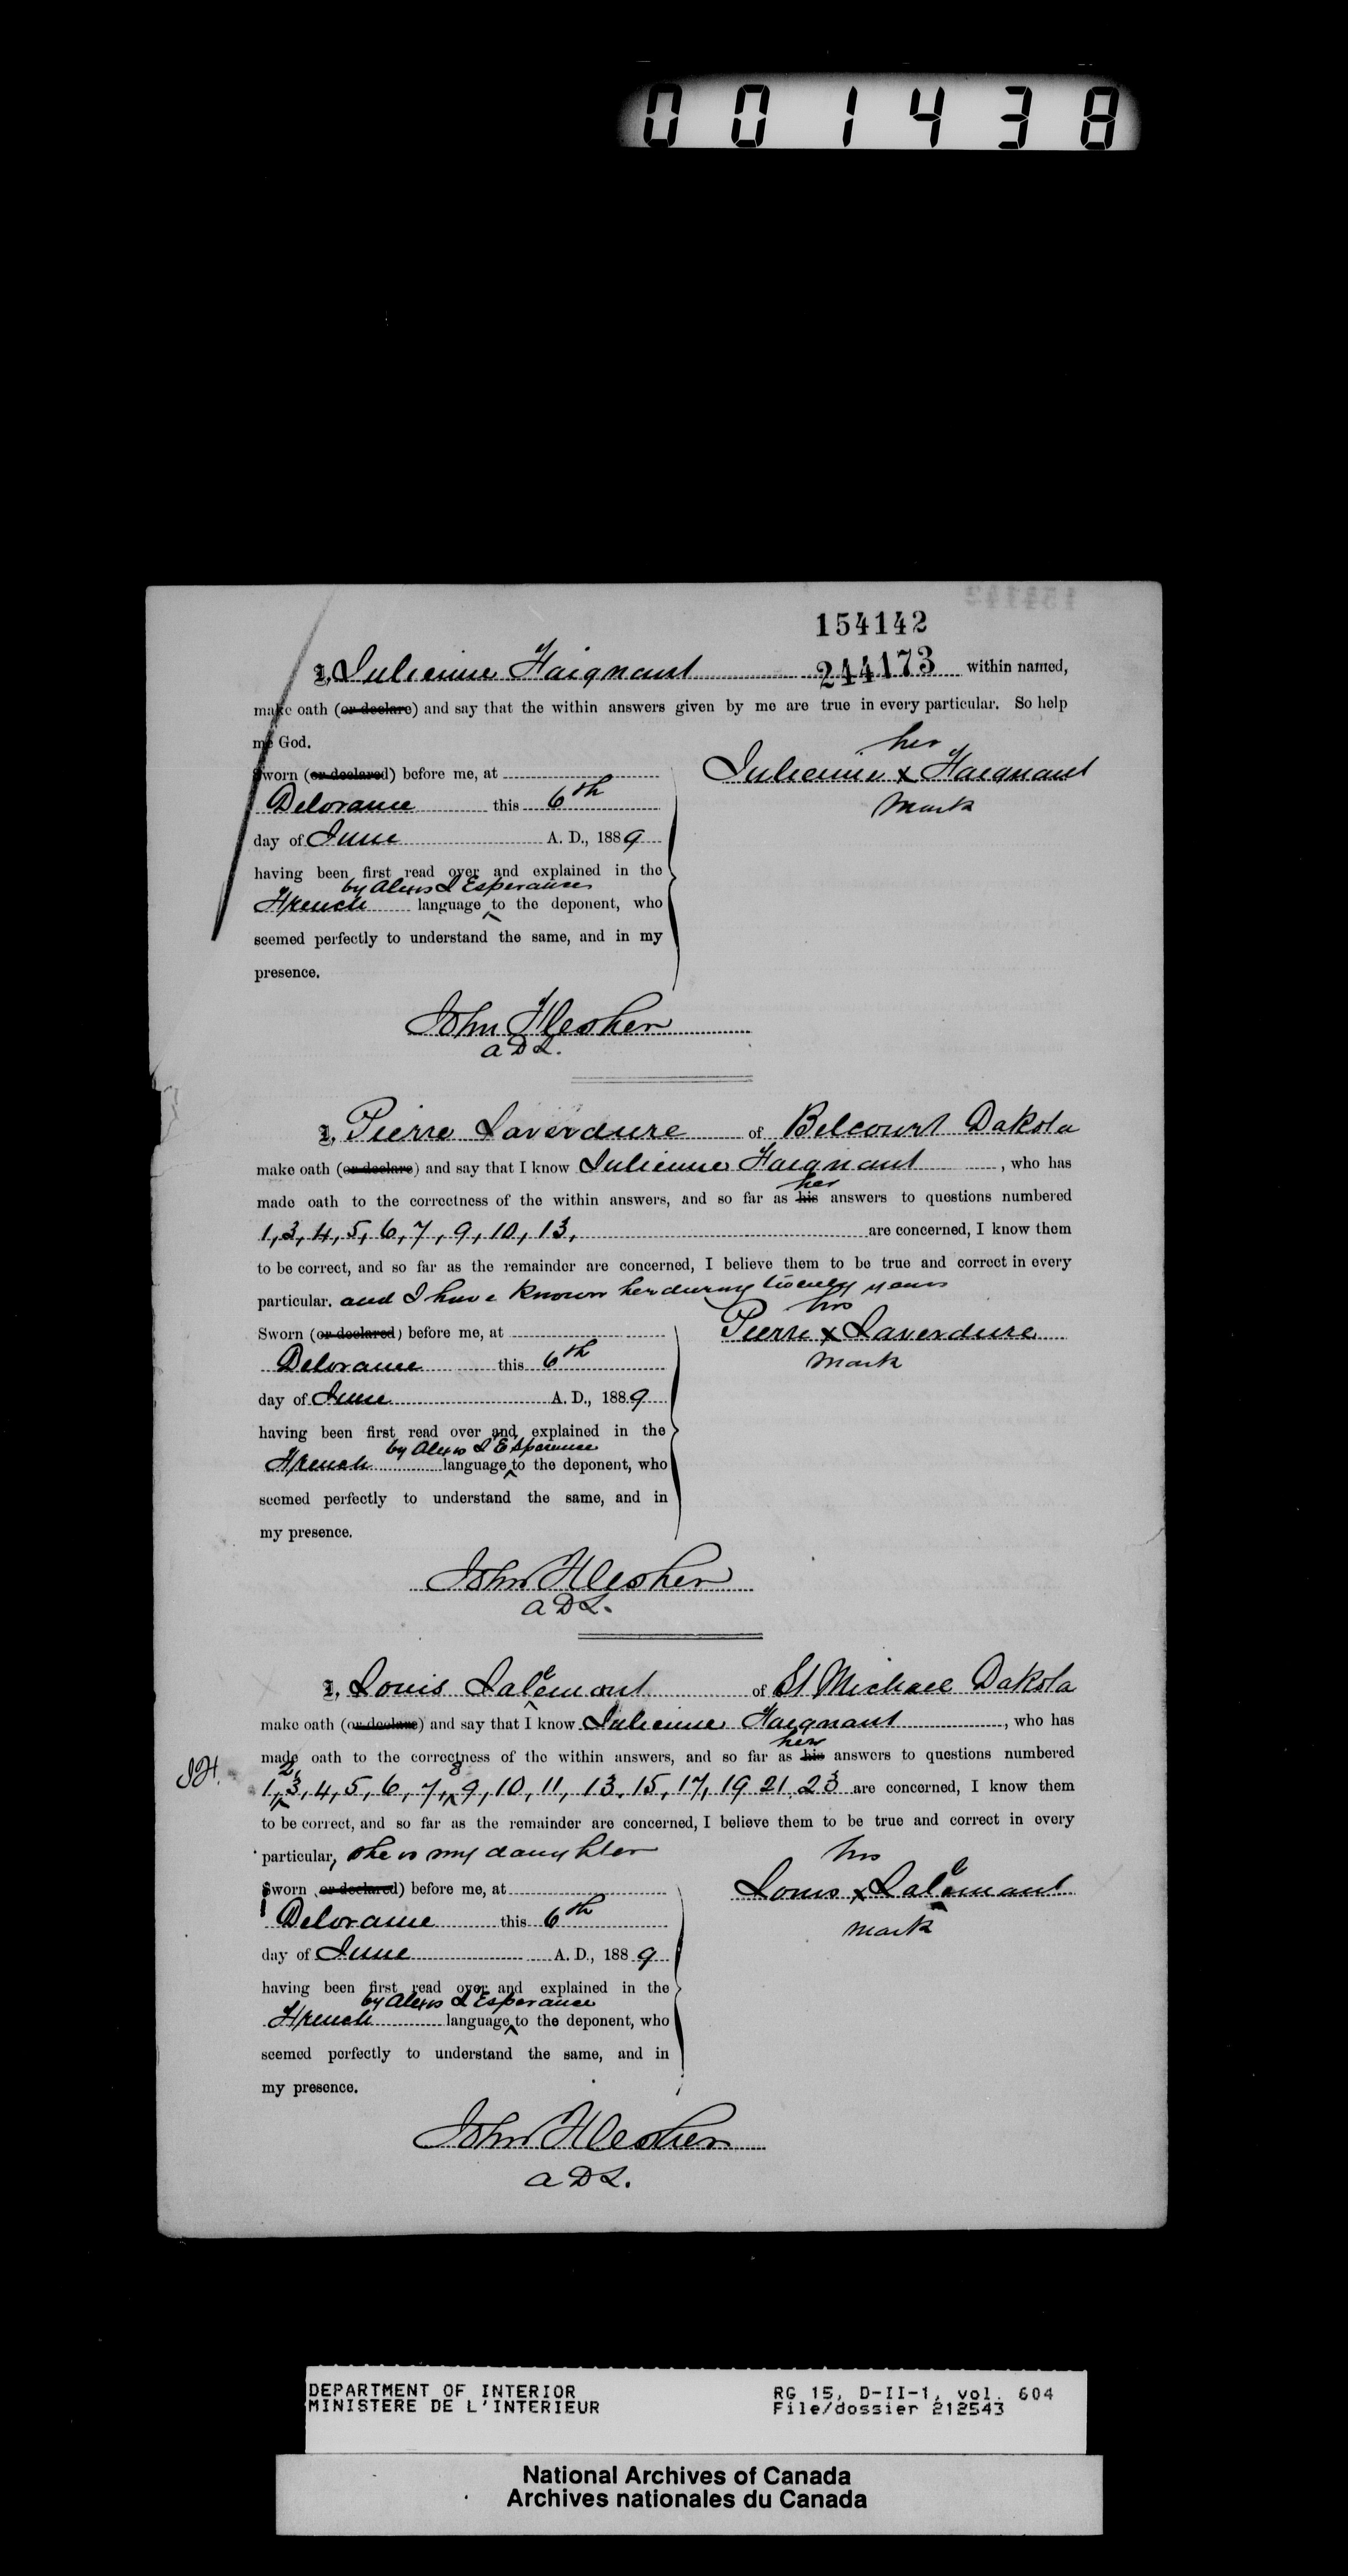 001438
154142
I, Julienne Haignant 244173 within named,
make oath (or declare) and say that the within answers given by me are true in every particular. So help
me God.
her
Sworn (or declared) before me, at Julienne x Haignant
Deloraine this 6th mark
day of June A. D., 1889
having been first read over and explained in the
by Alexis L'Esperance
French language to the deponent, who
seemed perfectly to understand the same, and in my
presence.
John Flesher
A D L.
I, Pierre Laverdure of Belcourt Dakota
make oath (or declare) and say that I know Julienne Haignant , who has
her
made oath to the correctness of the within answers, and so far as his answers to questions numbered
1, 3, 4, 5, 6, 7, 9, 10, 13, are concerned, I know them
to be correct, and so far as the remainder are concerned, I believe them to be true and correct in every
particular. and I have known her during twenty years
his
Sworn (or declared) before me, at Pierre x Laverdure
Deloraine this 6th mark
day of June A. D., 1889
having been first read over and explained in the
by Alexis L'Esperance
French language to the deponent, who
seemed perfectly to understand the same, and in
my presence.
John Flesher
A D L.
I, Louis Lalemont of St Michael Dakota
make oath (or declare) and say that I know Julienne Haignant , who has
her
made oath to the correctness of the within answers, and so far as his answers to questions numbered
2, 8
J H. 1, 3, 4, 5, 6, 7, 9, 10, 11, 13, 15, 17, 19 21, 23 are concerned, I know them
to be correct, and so far as the remainder are concerned, I believe them to be true and correct in every
particular, she is my daughter
his
Sworn (or declared) before me, at Louis x Lalemant
Deloraine this 6th mark
day of June A. D., 1889
having been first read over and explained in the
by Alexis L'Esperance
French language to the deponent, who
seemed perfectly to understand the same, and in
my presence.
John Flesher
A D L.
DEPARTMENT OF INTERIOR RG 15, D-II-1, vol. 604
MINISTERE DE L'INTERIEUR File/dossier 212543
National Archives of Canada
Archives nationales du Canada